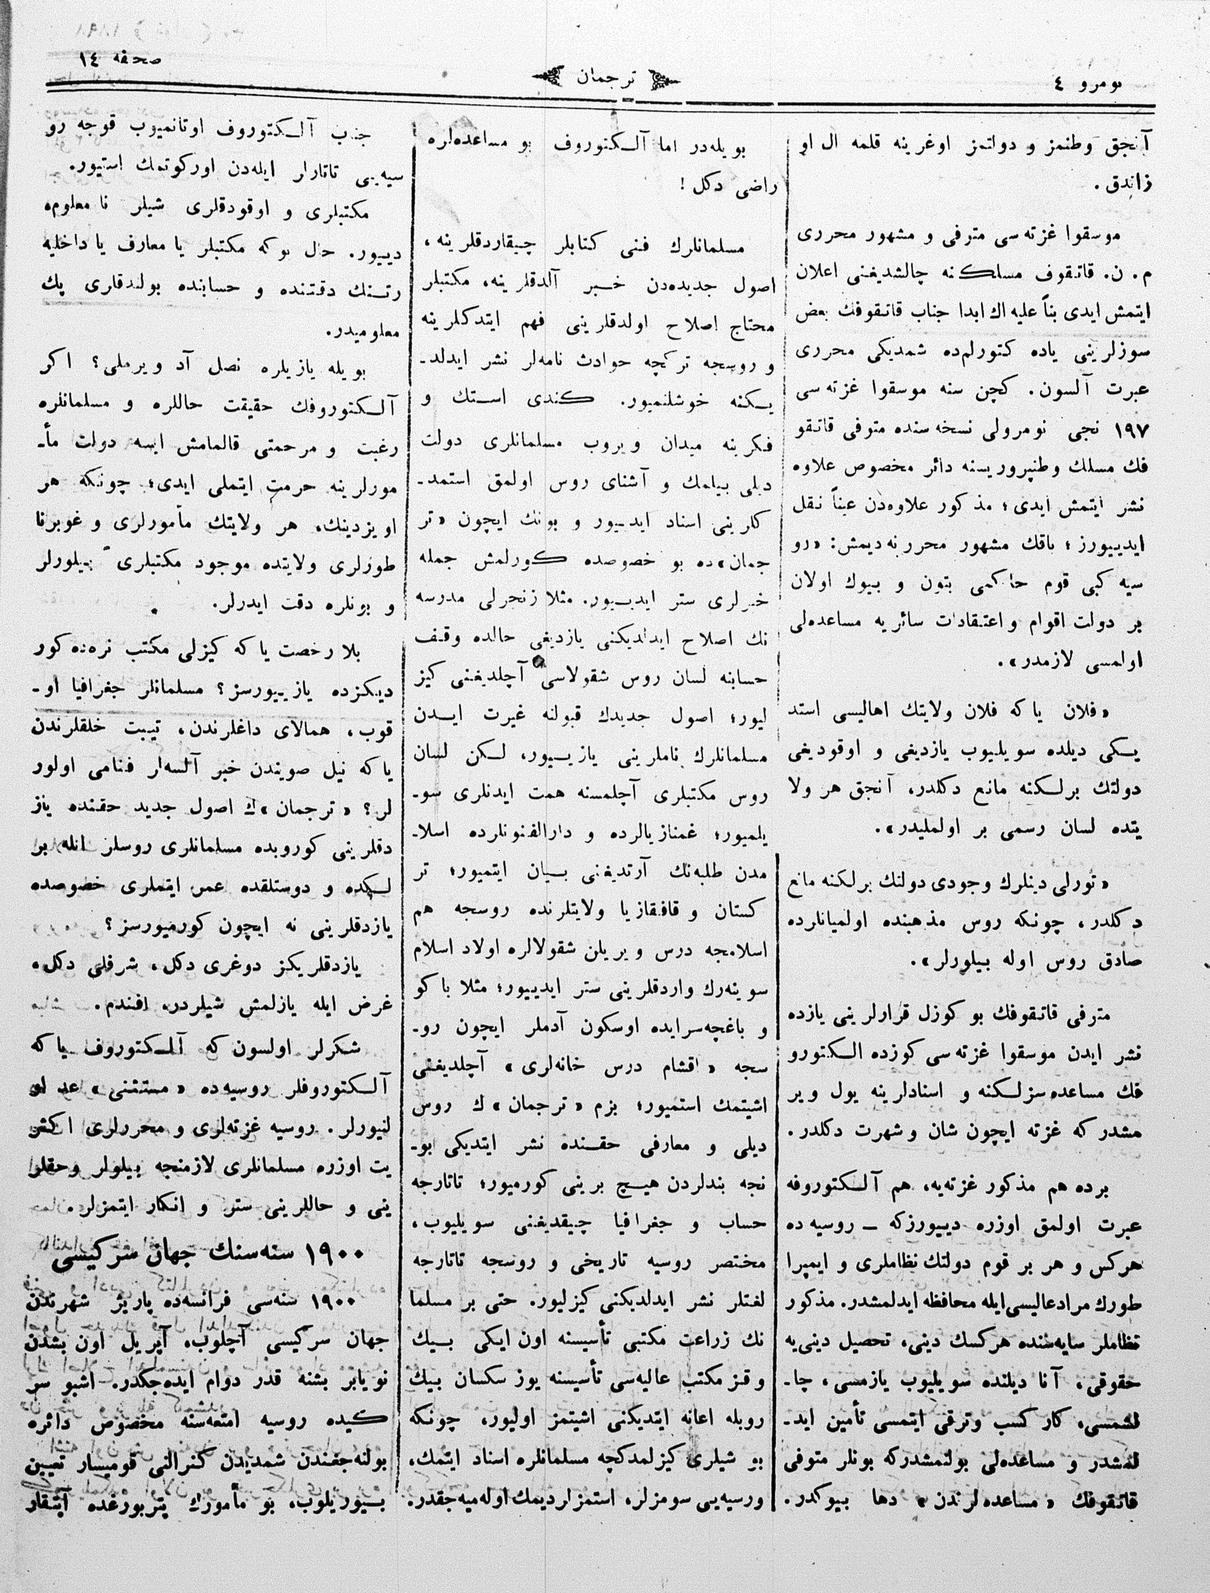 نومرو ٤
ترجمان
صحفه ١٤
آنجق وطنمز و دولتمز اوغرینه قلمه ال او
زاندق.
موسقوا غزته‌سی مترفی و مشهور محرری
م. ن. قاتقوف مسلكنه چالشدیغنی اعلان
ایتمش ایدی بناً علیه اك ابدا جناب قاتقوفك بعض
سوزلرینی یاده کتورلمده شمدیکی محرری
عبرت آلسون. کچن سنه موسقوا غزته‌سی
١٩٧ نجی نومرولی نسخه‌سنده متوفی قاتقو
فك مسلك وطنپروریسنه دائر مخصوص علاوه
نشر ایتمش ایدی؛ مذکور علاوه‌دن عیناً نقل
ایدییورز؛ باقك مشهور محرر نه‌دیمش: «رو
سیه کبی قوم حاکمی بتون و بیوك اولان
بر دولت اقوام و اعتقادات سائریه مساعده‌لی
اولمسی لازمدر».
«فلان یاکه فلان ولایتك اهالیسی استد
یکی دیلده سویلیوب یازدیغی و اوقودیغی
دولتك برلکنه مانع دکلدر، آنجق هر ولا
یتده لسان رسمی بر اولملیدر».
«تورلی دینلرك وجودی دولتك برلکنه مانع
دکلدر، چونکه روس مذهبنده اولمیانلرده
صادق روس اوله بیلورلر».
مترفی قاتقوفك بو کوزل قرارلرینی یازده
نشر ایدن موسقوا غزته‌سی کوزده الکتورو
فك مساعده‌سزلکنه و اسنادلرینه یول ویر
مشدرکه غزته ایچون شان و شهرت دکلدر.
برده هم مذکور غزته‌یه، هم آلکتوروفه
عبرت اولمق اوزره دییورزکه ــ روسیه‌ده
هرکس و هر بر قوم دولتك نظاملری و ایمپرا
طورك مراد عالیسی ایله محافظه ایدلمشدر. مذکور
نظاملر سایه‌سنده هرکسك دینی، تحصیل دینی‌یه
حقوقی، آنا دیلنده سویلیوب یازمسی، چا۔
لشمسی، کار کسب وترقی ایتمسی تأمین اید۔
لمشدر و مساعده‌لی بولنمشدرکه بونلر متوفی
قاتقوفك «مساعده‌لرندن» دها بیوکدر.
بویله‌در اما آلکتوروف بو مساعده‌لره
راضی دکل!
مسلمانلرك فنی کتابلر چیقاردقلرینه،
اصول جدیده‌دن خبر آلدقلرینه، مکتبلر
محتاج اصلاح اولدقلرینی فهم ایتدکلرینه
و روسجه ترکچه حوادث نامه‌لر نشر ایدلد۔
یکنه خوشلنمیور. کندی استك و
فکرینه میدان ویروب مسلمانلری دولت
دیلی بیلمك و آشنای روس اولمق استمد۔
کلرینی اسناد ایدیور و بونك ایچون «تر
جمان»ده بو خصوصده کورلمش جمله
خبرلری ستر ایدییور. مثلا زنجرلی مدرسه
نك اصلاح ایدلدیکنی یازدیغی حالده وقف
حسابنه لسان روس شقولاسی آچلدیغنی کیز
لیور؛ اصول جدیدك قبولنه غیرت ایدن
مسلمانلرك ناملرینی یازییور، لکن لسان
روس مکتبلری آچلمسنه همت ایدنلری سو۔
یلمیور؛ غمنازیالرده و دارالفنونلرده اسلا۔
مدن طلبه‌نك آرتدیغنی بیان ایتمیور؛ تر
کستان و قافقازیا ولایتلرنده روسجه هم
اسلامجه درس ویریلن شقولالره اولاد اسلام
سوینه‌رك واردقلرینی ستر ایدییور؛ مثلا باکو
و باغچه‌سرایده اوسکون آدملر ایچون رو۔
سجه «اقشام درس خانه‌لری» آچلدیغنی
اشیتمك استمیور؛ بزم «ترجمان»ك روس
دیلی و معارفی حقنده نشر ایتدیکی بو۔
نجه بندلردن هیچ برینی کورمیور؛ تاتارجه
حساب و جغرافیا چیقدیغنی سویلیوب،
مختصر روسیه تاریخی و روسجه تاتارجه
لغتلر نشر ایدلدیکنی کیزلیور. حتی بر مسلما
نك زراعت مکتبی تأسیسنه اون ایکی بیك
و قز مکتب عالیه‌سی تأسیسنه یوز سکسان بیك
روبله اعانه ایتدیکنی اشیتمز اولیور، چونکه
بو شیلری کیزلمدکچه مسلمانلره اسناد ایتمك،
و رسیه‌یی سومزلر، استمزلر دیمك اوله‌میه‌جقدر.
جناب آلکتوروف اوتانمیوب قوجه رو
سیه‌یی تاتارلر ایله‌دن اورکوتمك استیور.
مکتبلری و اوقودقلری شیلر نا معلومه
دییور. حال بوکه مکتبلر یا معارف یا داخلیه
رتنك دقتنده و حسابنده بولندقلری پك
معلومیدر.
بویله یازیلره نصل آد ویرملی؟ اکر
آلکتوروفك حقیقت حاللره و مسلمانلره
رغبت و مرحمتی قالمامش ایسه دولت مأ۔
مورلرینه حرمت ایتملی ایدی؛ چونکه هر
اویزدینك، هر ولایتك مأمورلری و غوبرنا
طورلری ولایتده موجود مکتبلری بیلورلر
و بونلره دقت ایدرلر.
بلا رخصت یاکه کیزلی مکتب نره‌ده کور
دیکزده یازییورسز؟ مسلمانلر جغرافیا او۔
قوب، همالای داغلرندن، تیبت خلقلرندن
یاکه نیل صویندن خبر آلسه‌لر فنامی اولور
لر؟ «ترجمان»ك اصول جدید حقنده یاز
دقلرینی کوروبده مسلمانلری روسلر ایله بر
لکده و دوستلقده عمر ایتملری خصوصده
یازدقلرینی نه ایچون کورمیورسز؟
یازدقلریکز دوغری دکل، شرفلی دکل،
غرض ایله یازلمش شیلردر، افندم.
شکرلر اولسون که آلکتوروف یاکه
آلکتوروفلر روسیه‌ده «مستثنی» عد او
لنیورلر. روسیه غزته‌لری و محررلری اکثر
یت اوزره مسلمانلری لازمنجه بیلولر وحقلر
ینی و حاللرینی ستر و انکار ایتمزلر.
١٩٠٠ سنه‌سنك جهان سرکیسی
١٩٠٠ سنه‌سی فرانسه‌ده پاریژ شهرندن
جهان سرکیسی آچلوب، آپریل اون بشدن
نویابر بشنه قدر دوام ایده‌جکدر. اشبو سر
کیده روسیه امتعه‌سنه مخصوص دائره
بولنه‌جقندن شمدیدن کنرالنی قومیسار تعیین
بیوریلوب، بو مأمورك پتربورغده آپشقار